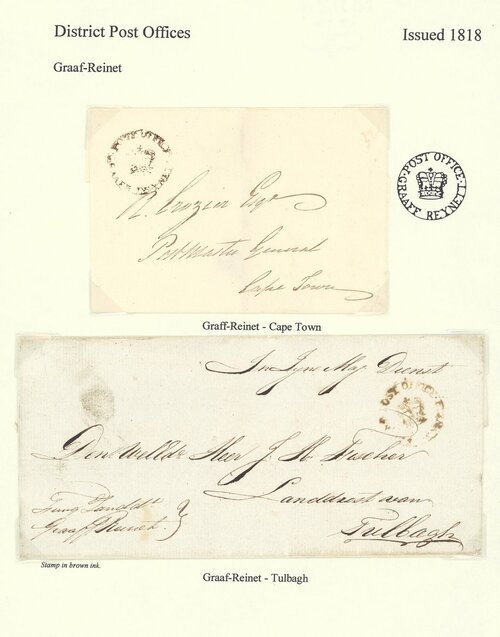 District Post Offices
Issued 1818
Graaf-Reinet
POST OFFICE
GRAAFF REYNET
R. Crozier Esqr
Postmaster General
Cape Town
·POST OFFICE·
GRAAFF REYNETT
Graff-Reinet - Cape Town
In Zyn Maj. Dienst
POST OFFICE
Den Welld. Heer J. H. Fischer
Landdrost van
Tulbagh
Fung Landdt
Graaff Reinet
Stamp in brown ink.
Graaf-Reinet - Tulbagh